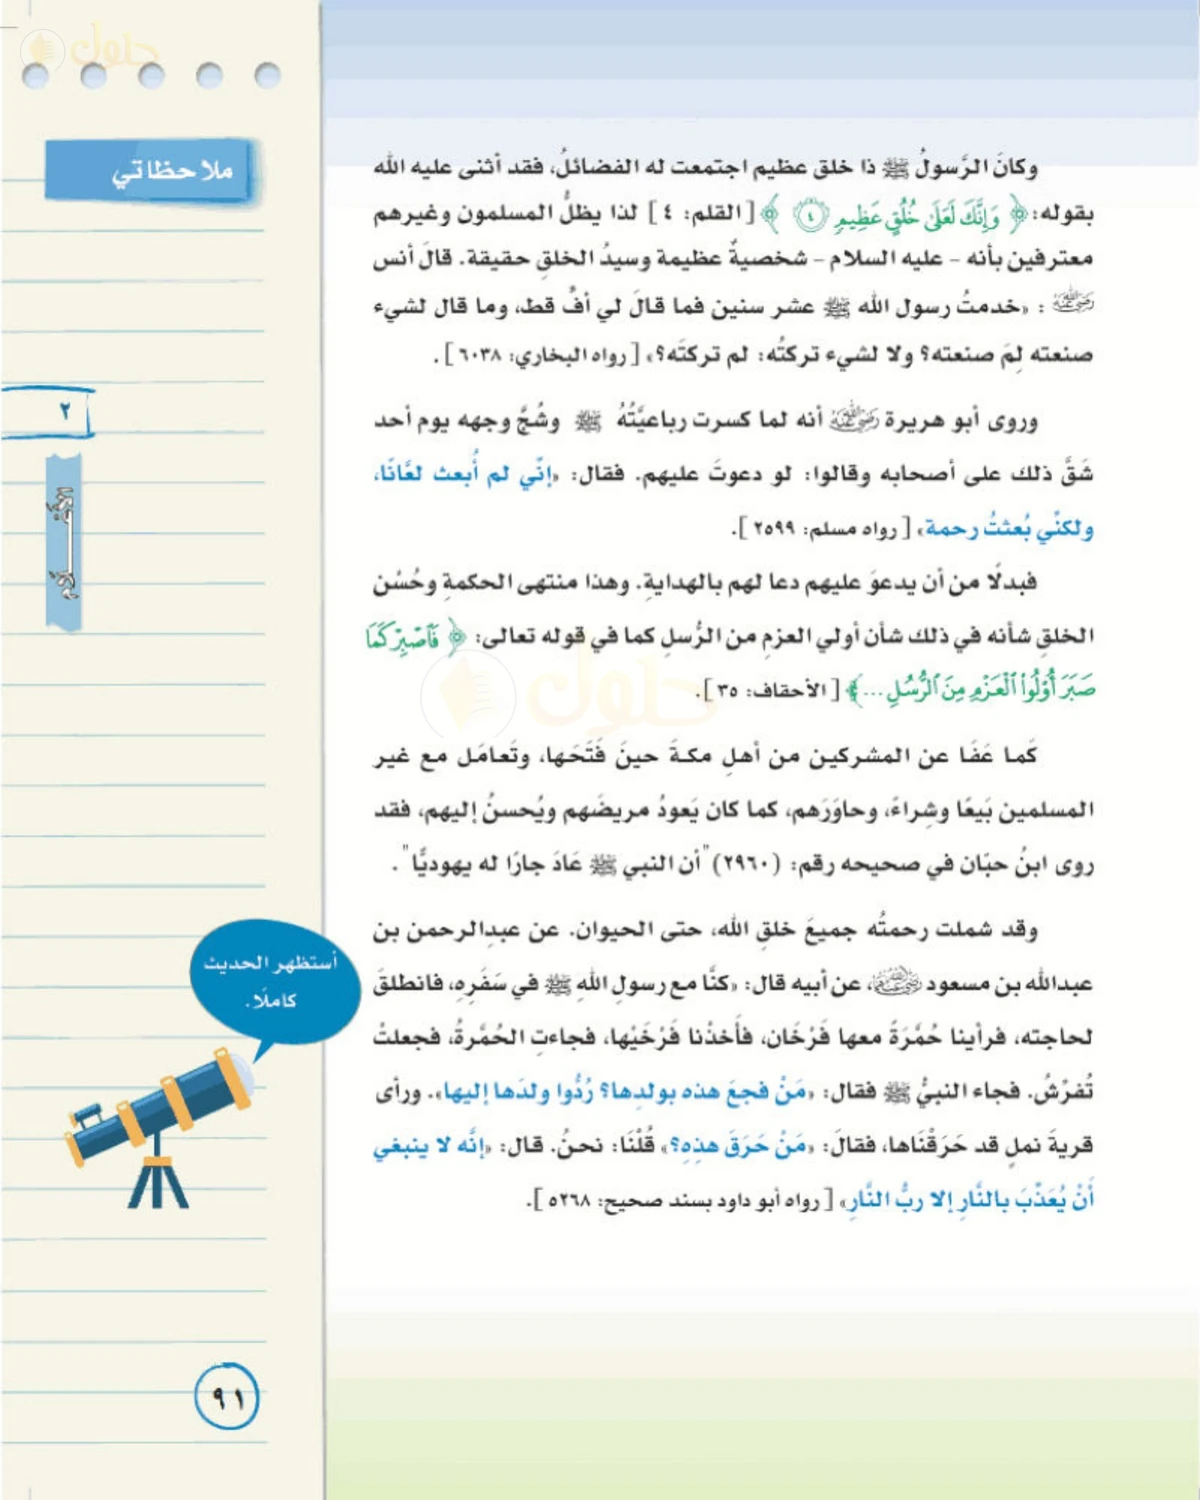 حلول
ملاحظاتي
وكانَ الرَّسولُ ﷺ ذا خلق عظيم اجتمعت له الفضائلُ، فقد أثنى عليه الله
بقوله: ﴿ وَإِنَّكَ لَعَلَىٰ خُلُقٍ عَظِيمٍ ٤ ﴾ [القلم: ٤] لذا يظلُّ المسلمون وغيرهم
معترفين بأنه - عليه السلام - شخصيةٌ عظيمة وسيدُ الخلقِ حقيقة. قالَ أنس
رضي الله عنه : «خدمتُ رسول الله ﷺ عشر سنين فما قالَ لي أفٌّ قط، وما قال لشيء
صنعته لِمَ صنعته؟ ولا لشيء تركتُه: لم تركتَه؟» [رواه البخاري: ٦٠٣٨].
وروى أبو هريرة رضي الله عنه أنه لما كسرت رباعيَّتُهُ ﷺ وشُجَّ وجهه يوم أحد
شَقَّ ذلك على أصحابه وقالوا: لو دعوتَ عليهم. فقال: «إنّي لم أُبعث لعَّانًا،
ولكنِّي بُعثتُ رحمة» [رواه مسلم: ٢٥٩٩].
فبدلًا من أن يدعوَ عليهم دعا لهم بالهدايةِ. وهذا منتهى الحكمةِ وحُسْن
الخلقِ شأنه في ذلك شأن أولي العزمِ من الرُّسلِ كما في قوله تعالى: ﴿ فَٱصْبِرْ كَمَا
صَبَرَ أُوْلُواْ ٱلْعَزْمِ مِنَ ٱلرُّسُلِ ...﴾ [الأحقاف: ٣٥].
كَما عَفَا عن المشركين من أهلِ مكةَ حينَ فَتَحَها، وتَعامَل مع غير
المسلمين بَيعًا وشِراءً، وحاوَرَهم، كما كان يَعودُ مريضَهم ويُحسنُ إليهم، فقد
روى ابنُ حبّان في صحيحه رقم: (٢٩٦٠) "أن النبي ﷺ عَادَ جارًا له يهوديًّا".
وقد شملت رحمتُه جميعَ خلقِ الله، حتى الحيوان. عن عبدِالرحمن بن
عبدالله بن مسعود رضي الله عنه، عن أبيه قال: «كنَّا مع رسولِ اللهِ ﷺ في سَفَرِهِ، فانطلقَ
لحاجته، فرأينا حُمَّرَةً معها فَرْخَان، فأَخذْنا فَرْخَيْها، فجاءتِ الحُمَّرةُ، فجعلتْ
تُفرْشُ. فجاء النبيُّ ﷺ فقال: «مَنْ فجعَ هذه بولدِها؟ رُدُّوا ولدَها إليها». ورأى
قريةَ نملٍ قد حَرَقْنَاها، فقالَ: «مَنْ حَرَقَ هذِهِ؟» قُلْنَا: نحنُ. قال: «إنَّه لا ينبغي
أنْ يُعَذّبَ بالنَّارِ إلا ربُّ النَّارِ» [رواه أبو داود بسند صحيح: ٥٢٦٨].
٢
حلول
أستظهر الحديث
كاملًا.
٩١